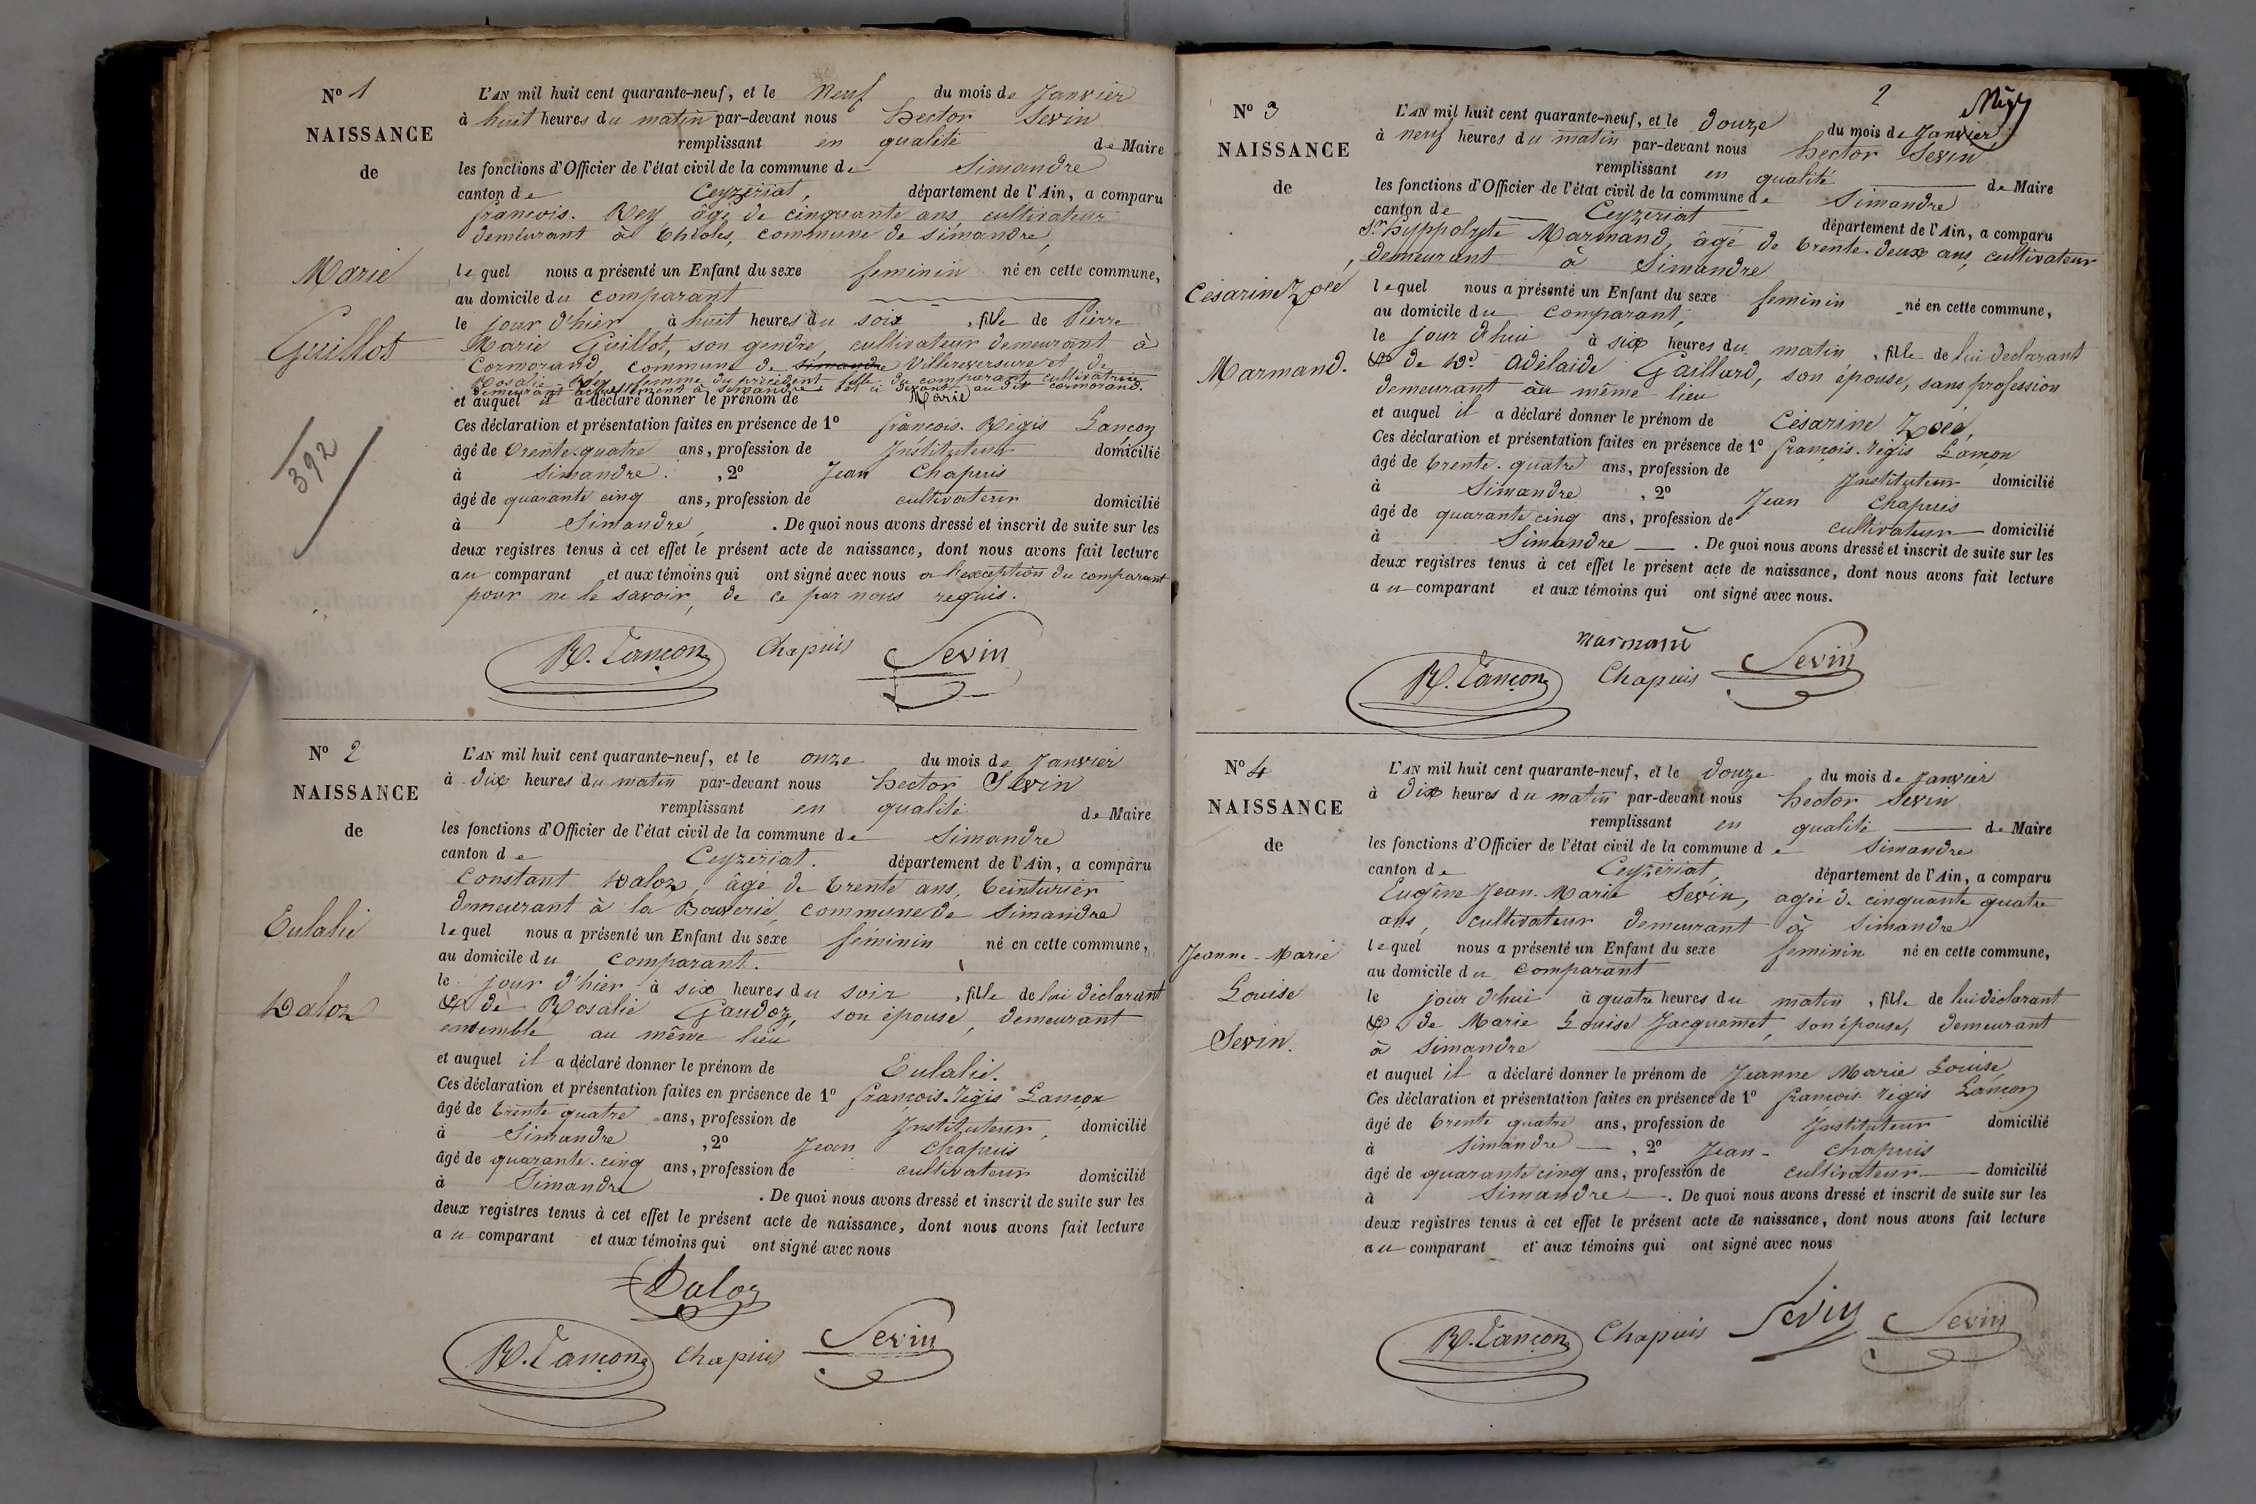 Nº 1
NAISSANCE
de
Marie
Guillot
392
L'AN mil huit cent quarante-neuf, et le neuf du mois de Janvier
à huit heures du matin par-devant nous hector Sevin
remplissant en qualité de Maire
les fonctions d'Officier de l'état civil de la commune de Simandre
canton de Ceyzériat, département de l'Ain, a comparu
françois. Rey âgé de cinquante ans, cultivateur
demeurant à thioles, commune de simandre,
lequel nous a présenté un Enfant du sexe feminin né en cette commune,
au domicile du comparant
le jour d'hier à huit heures du soir, fille de Pierre
Marie Guillot, son gendre, cultivateur demeurant à
Cormorand, commune de simandre Villereversure et de
Rosalie Rey femme du précédent fille du comparant cultivatrice
demeurant actuellement à simandre et ci devant au dit cormorand.
et auquel il a déclaré donner le prénom de Marie
Ces déclaration et présentation faites en présence de 1º françois. Régis Lançon
âgé de trente-quatre ans, profession de Instituteur domicilié
à Simandre. , 2º Jean Chapuis
âgé de quarante cinq ans, profession de cultivateur domicilié
à Simandre, . De quoi nous avons dressé et inscrit de suite sur les
deux registres tenus à cet effet le présent acte de naissance, dont nous avons fait lecture
au comparant et aux témoins qui ont signé avec nous a l'exception du comparant
pour ne le savoir, de ce par nous requis.
R. Lançon Chapuis Sevin
Nº 2
NAISSANCE
de
Eulalie
Daloz
L'AN mil huit cent quarante-neuf, et le onze du mois de Janvier
à dix heures du matin par-devant nous hector Sevin
remplissant en qualité de Maire
les fonctions d'Officier de l'état civil de la commune de Simandre
canton de Ceyzériat. département de l'Ain, a comparu
Constant Daloz, âgé de trente ans, teinturier
demeurant à la Bouverie, commune de Simandre
lequel nous a présenté un Enfant du sexe féminin né en cette commune,
au domicile du comparant.
le jour d'hier à six heures du soir, fille de lui déclarant
& de Rosalie Gaudoz, son épouse, demeurant
ensemble au même lieu
et auquel il a déclaré donner le prénom de Eulalie.
Ces déclaration et présentation faites en présence de 1º françois. régis Lançon
âgé de trente quatre ans, profession de Instituteur, domicilié
à Simandre , 2º Jean Chapuis
âgé de quarante-cinq ans, profession de cultivateur domicilié
à Simandre . De quoi nous avons dressé et inscrit de suite sur les
deux registres tenus à cet effet le présent acte de naissance, dont nous avons fait lecture
au comparant et aux témoins qui ont signé avec nous
Daloz
R. Lançon Chapuis Sevin
2
Nº 3
NAISSANCE
de
Césarine Zoé
Marmand.
L'AN mil huit cent quarante-neuf, et le douze du mois de Janvier
à neuf heures du matin par-devant nous hector Sevin
remplissant en qualité de Maire
les fonctions d'Officier de l'état civil de la commune de Simandre
canton de Ceyzériat département de l'Ain, a comparu
Sr. hyppolyte Marmand, âgé de trente-deux ans, cultivateur
demeurant à Simandre
lequel nous a présenté un Enfant du sexe feminin né en cette commune,
au domicile du comparant,
le jour d'hui à six heures du matin, fille de lui declarant
& de Dº. Adélaïde Gaillard, son épouse, sans profession
demeurant au même lieu
et auquel il a déclaré donner le prénom de Césarine Zoé,
Ces déclaration et présentation faites en présence de 1º françois. régis Lançon
âgé de trente-quatre ans, profession de Instituteur domicilié
à Simandre , 2º Jean Chapuis
âgé de quarante cinq ans, profession de cultivateur domicilié
à Simandre . De quoi nous avons dressé et inscrit de suite sur les
deux registres tenus à cet effet le présent acte de naissance, dont nous avons fait lecture
au comparant et aux témoins qui ont signé avec nous.
Marmand
R. Lançon Chapuis Sevin
Nº 4
NAISSANCE
de
Jeanne-Marie
Louise
Sevin.
L'AN mil huit cent quarante-neuf, et le douze du mois de Janvier
à dix heures du matin par-devant nous hector Sevin
remplissant en qualité de Maire
les fonctions d'Officier de l'état civil de la commune de Simandre
canton de Ceyzériat, département de l'Ain, a comparu
Eugène Jean-Marie Sevin, agée de cinquante quatre
ans, cultivateur demeurant à Simandre
lequel nous a présenté un Enfant du sexe feminin né en cette commune,
au domicile du comparant
le jour d'hui à quatre heures du matin, fille de lui déclarant
& de Marie Louise Jacquemet, son épouse, demeurant
à Simandre
et auquel il a déclaré donner le prénom de Jeanne Marie Louise
Ces déclaration et présentation faites en présence de 1º françois régis Lançon
âgé de trente quatre ans, profession de Instituteur domicilié
à Simandre , 2º Jean-Chapuis
âgé de quarante cinq ans, profession de cultivateur domicilié
à Simandre . De quoi nous avons dressé et inscrit de suite sur les
deux registres tenus à cet effet le présent acte de naissance, dont nous avons fait lecture
au comparant et aux témoins qui ont signé avec nous
R. Lançon Chapuis Sevin Sevin